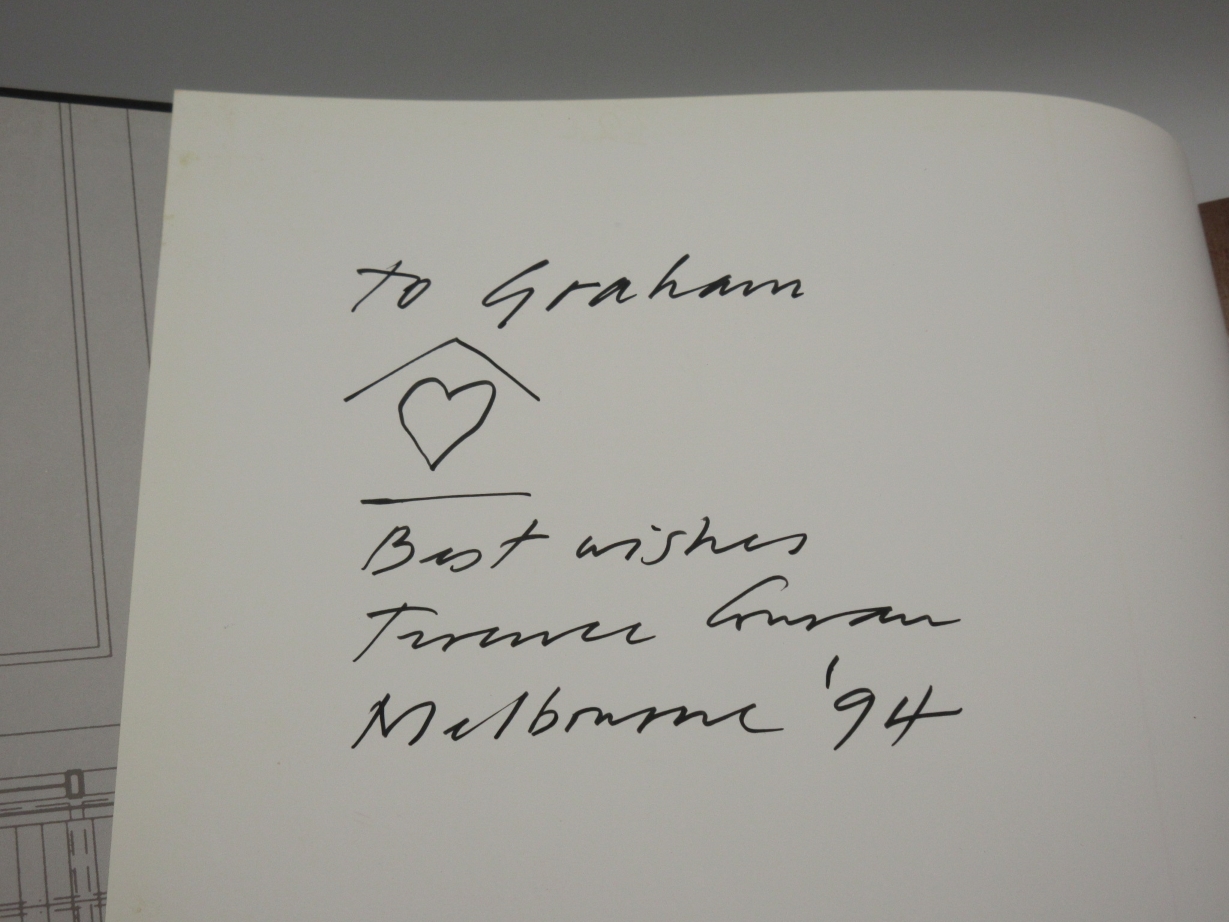 To Graham
Best wishes
Terence Conran
Melbourne '94